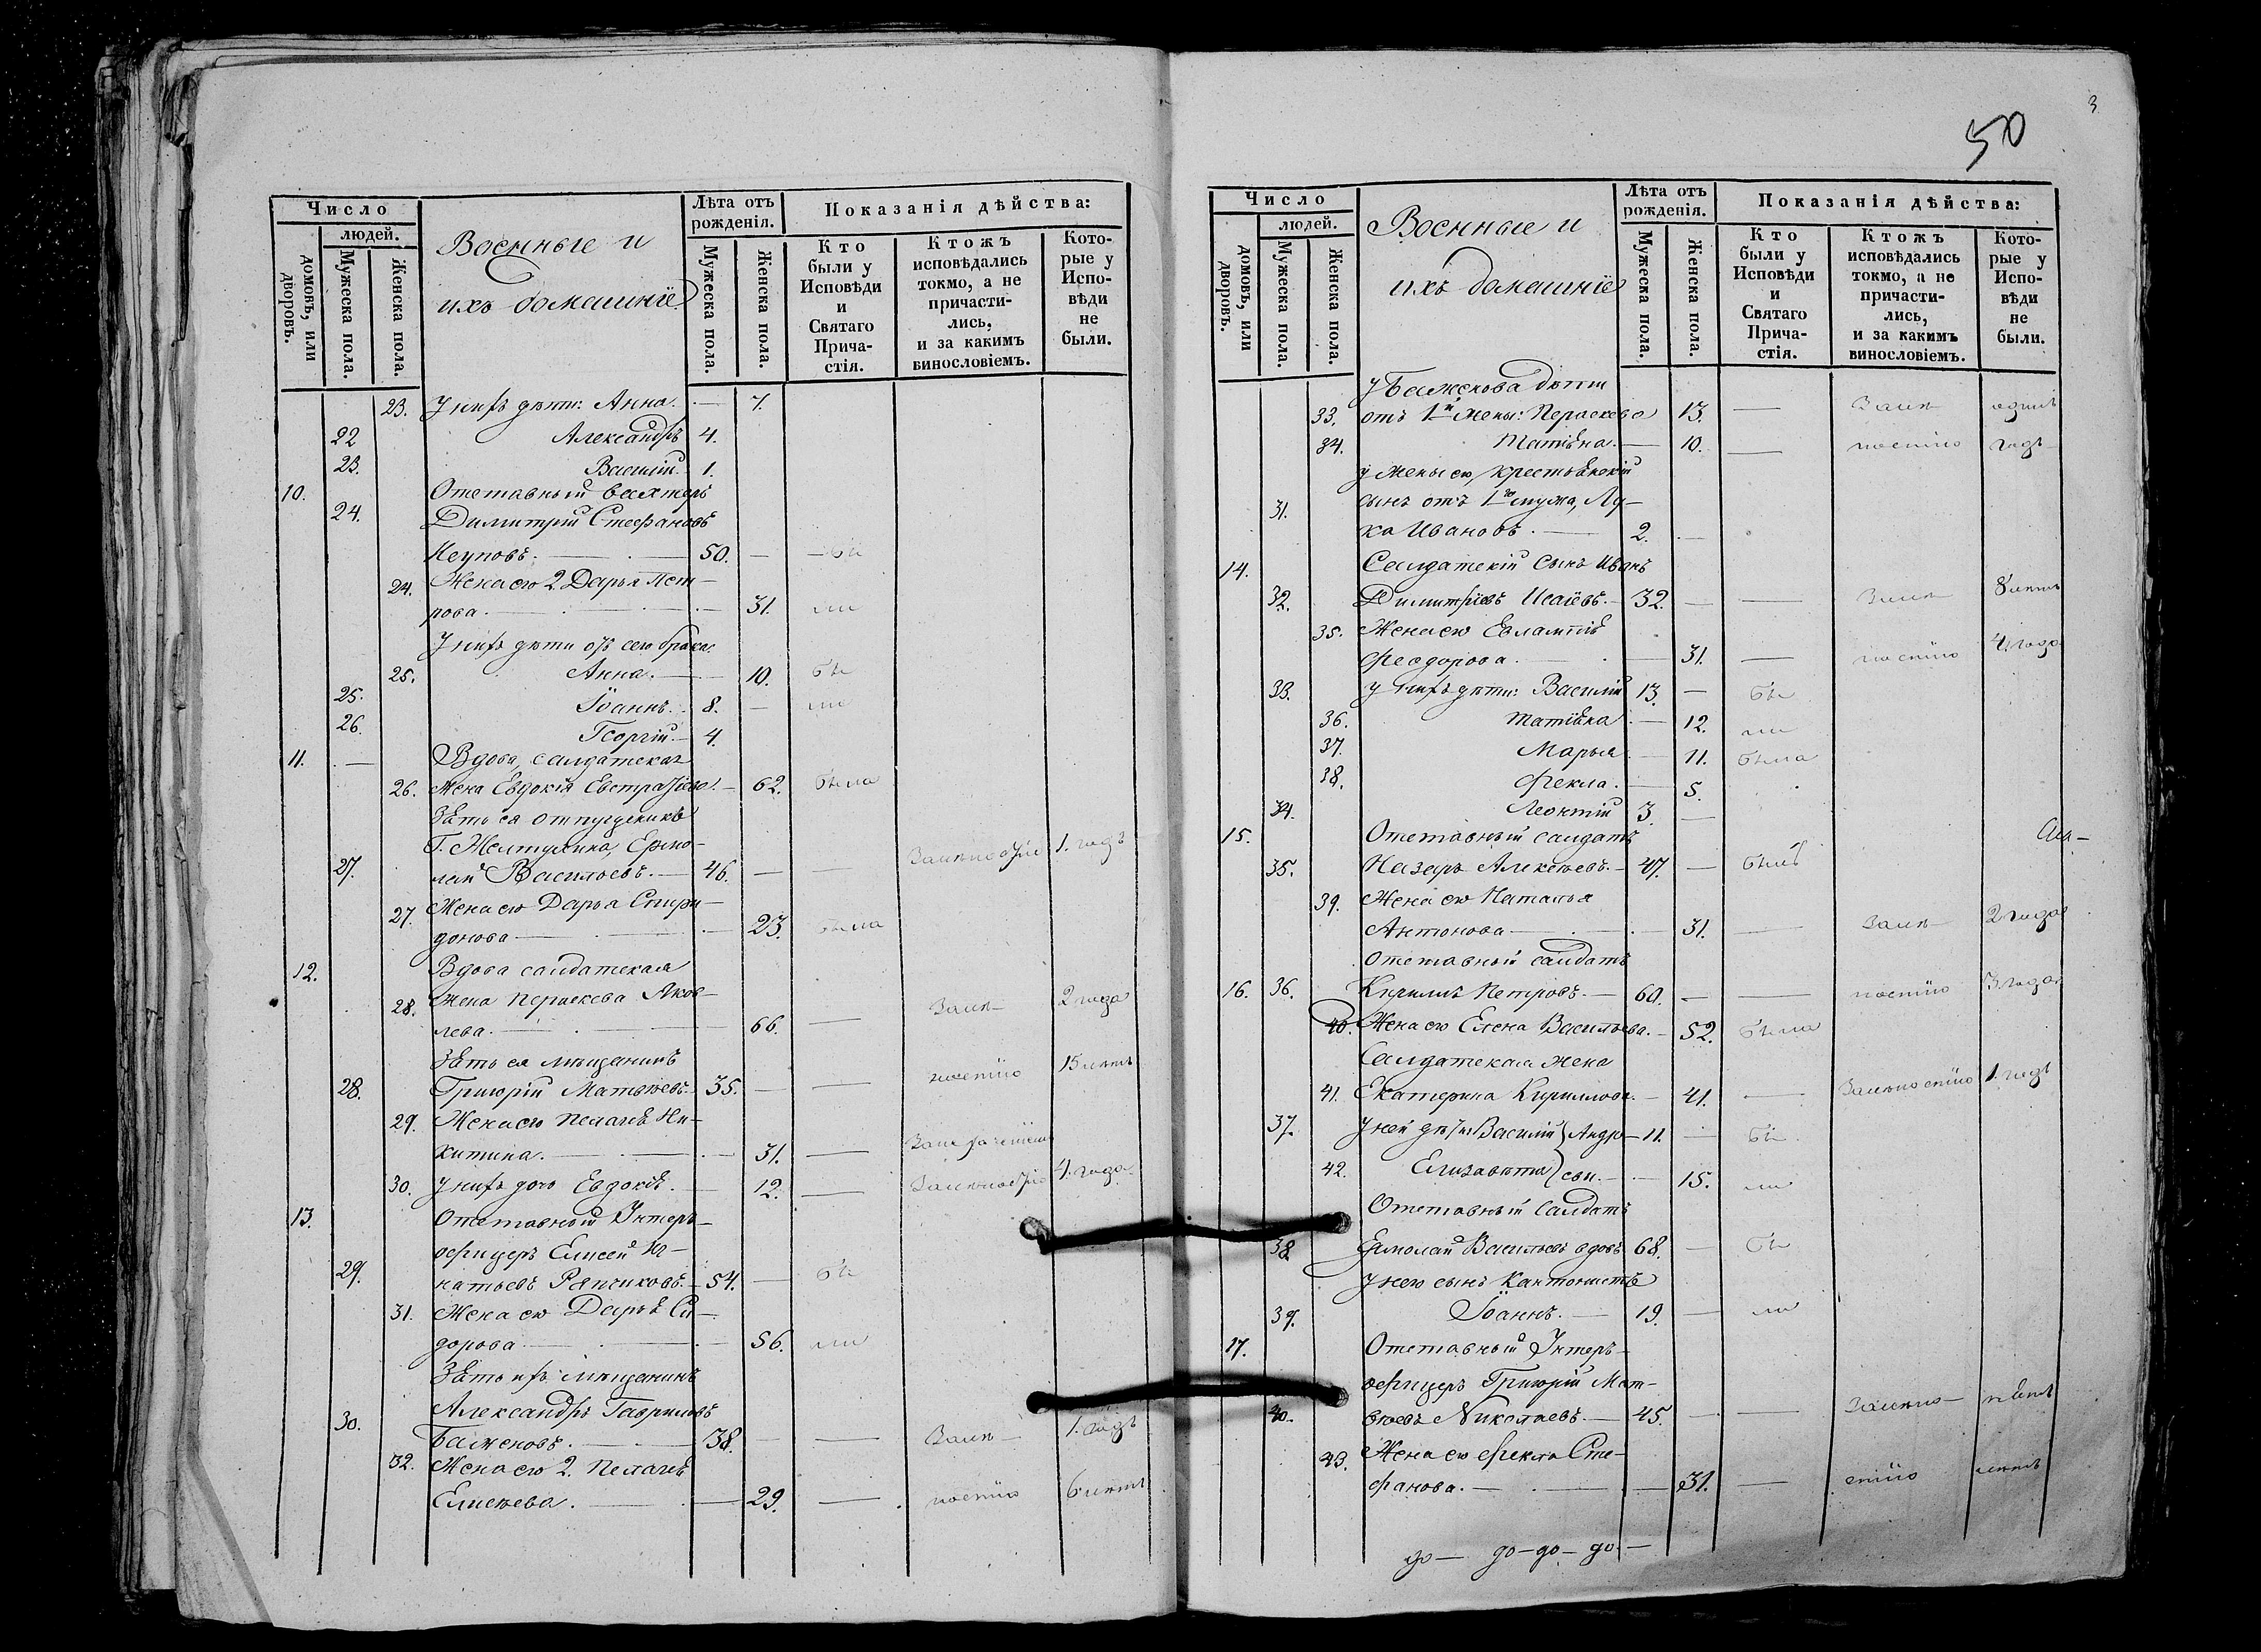 Число
людей.
домовъ, или дворовъ.
Мужеска пола.
Женска пола.
Военные и
ихъ домашніе
Лѣта отъ рожденія.
Мужеска пола.
Женска пола.
Показанія дѣйства:
Кто были у Исповѣди и Святаго Прича-стія.
Ктожъ исповѣдались токмо, а не причасти-лись, и за какимъ винословіемъ.
Кото-рые у Испо-вѣди не были.
23. У нихъ дѣти: Анна. — 7.
22 Александръ 4.
23. Василій. 1.
10. Отставный вахтеръ
24. Димитрій Стефановъ
Неуповъ. — 50. — бы
24. Жена его 2. Дарья Пет-
рова. — 31. ли
У нихъ дѣти отъ сего брака:
25. Анна. — 10. бы
25. Іоаннъ. 8. — ли
26. Георгій. — 4.
11. — Вдова, салдатская
26. жена Евдокія Евстратіева. — 62. была
Зять ея отпущеникъ
Г. Желтухина, Ермо-
27. лай Васильевъ. — 46. — — За лѣностію 1. годъ
27. Жена его Дарья Спири-
донова — 23. была
12. Вдова салдатская
28. жена Параскева Яков-
лева. — 66. — За лѣ- 2 года
Зять ея мѣщанинъ
28. Григорій Матвѣевъ. 35. — — ностію 15 лѣтъ
29. Жена его Пелагѣя Ни-
китина. — 31. —
30. У нихъ дочь Евдокія. — 12. — За лѣностію 4. года
13. Отставный Унтеръ-
офицеръ Елисей Иг-
29. натьевъ Рябчиковъ. — 54. — бы
31. Жена его Дарья Си-
дорова — 56. ли
Зять ихъ мѣщанинъ
Александръ Гавриловъ
30. Баженовъ. — 38. — — За лѣ- 1. годъ
32. Жена его 2. Пелагѣя
Елисѣева. — 29. — ностію 6 лѣтъ
3
50
Число
людей.
домовъ, или дворовъ.
Мужеска пола.
Женска пола.
Военные и
ихъ домашніе
Лѣта отъ рожденія.
Мужеска пола.
Женска пола.
Показанія дѣйства:
Кто были у Исповѣди и Святаго Прича-стія.
Ктожъ исповѣдались токмо, а не причасти-лись, и за какимъ винословіемъ.
Кото-рые у Испо-вѣди не были.
у Баженова дѣти
33. отъ 1й жены: Параскева 13. — За лѣ- одинъ
34. Татіяна. — 10. — ностію годъ
у жены его, крестьянскій
31. сынъ отъ 1го мужа, Лу-
ка Ивановъ. — 2. —
14. Салдатскій сынъ Иванъ
32. Димитріевъ Исаіевъ. — 32. — — За лѣ- 8 лѣтъ
35. Жена его Евлампія
Феодорова. — 31. — ностію 4 года
33. у нихъ дѣти: Василій 13. — бы
36. Татіяна. — 12. ли
37. Марья — 11. была
38. Фекла. — 5.
34. Леонтій 3. —
15. Отставный салдатъ
35. Назаръ Алексѣевъ. — 47. — былъ
39. Жена его Наталья
Антонова — 31. — За лѣ- 2 года
Отставный салдатъ
16. 36. Кириллъ Петровъ. — 60. — — ностію 3 года
40. Жена его Елена Васильева. — 52. была
Салдатская жена
41. Екатерина Кириллова. — 41. — За лѣностію 1. годъ
37. У ней дѣти Василій } Андре- 11. — бы
42. Елизавета } евы. — 15. ли
Отставный Салдатъ
38 Ермолай Васильевъ вдовъ 68. — бы
У него сынъ Кантонистъ
39. Іоаннъ. — 19. — ли
17. Отставный Унтеръ-
офицеръ Григорій Мат-
40. вѣевъ Николаевъ. — 45. — — За лѣно-
43. Жена его Фекла Сте-
фанова. — 31. — стію лѣтъ
до — до — до — до —